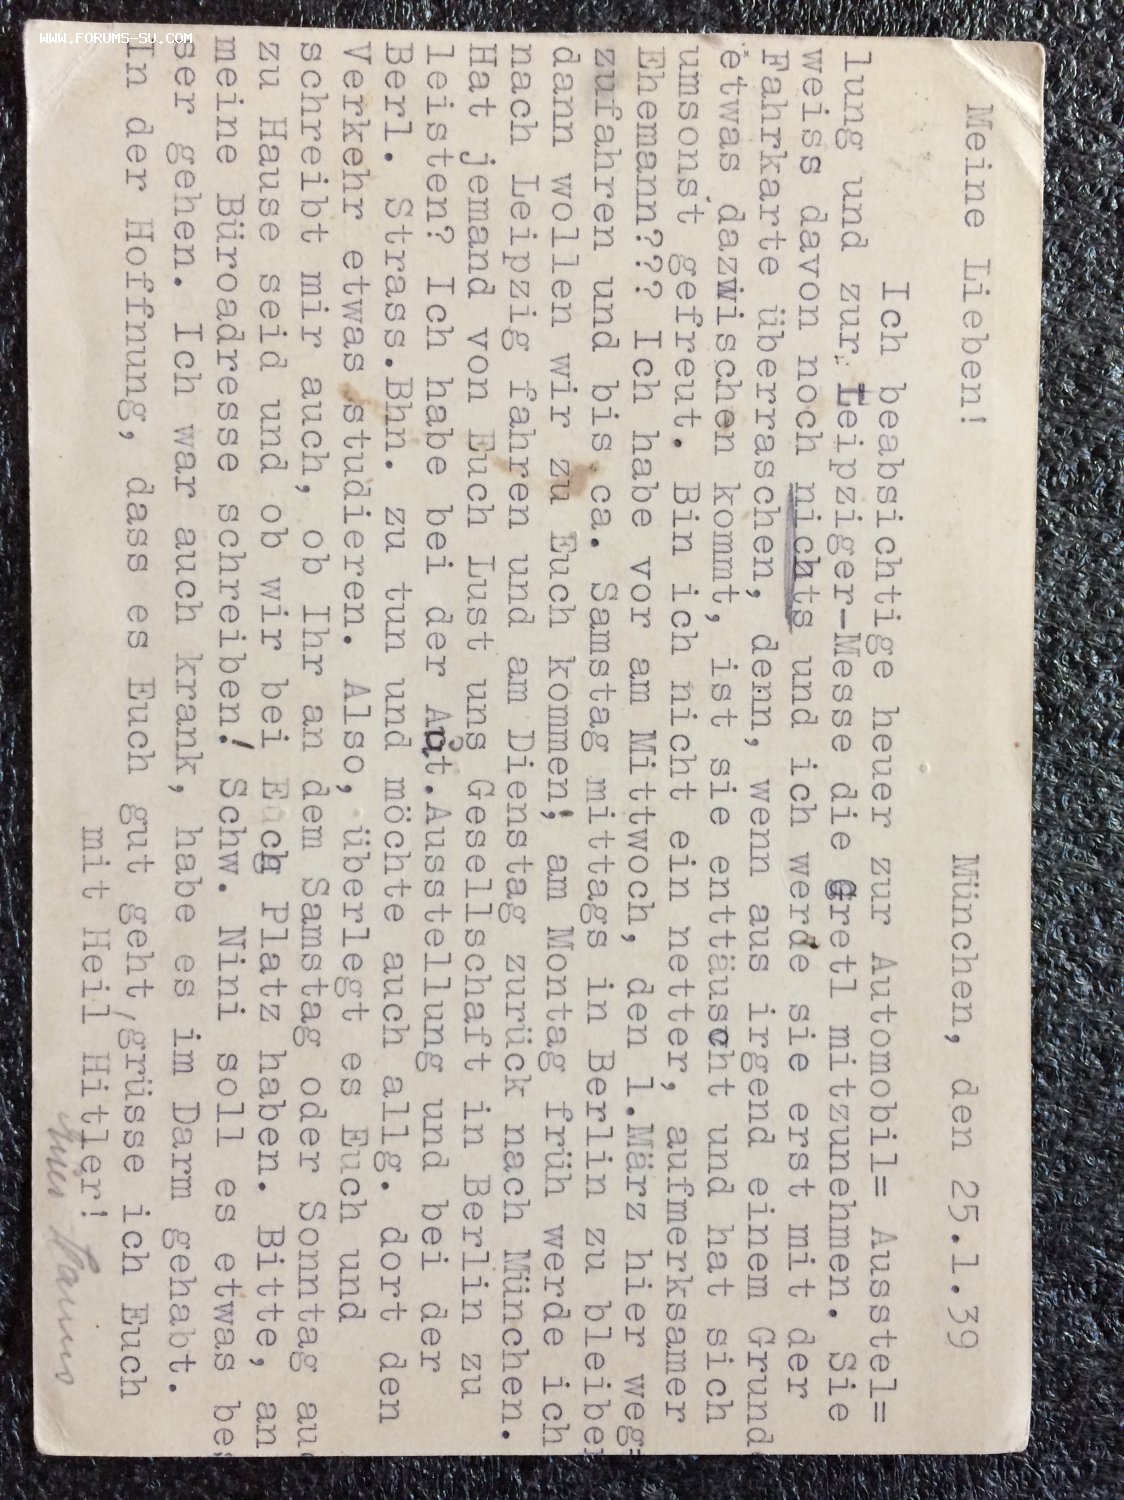 WWW.FORUMS-SU.COM
Meine Lieben! München, den 25.1.39
Ich beabsichtige heuer zur Automobil= Ausstel=
lung und zur Leipziger-Messe die Gretl mitzunehmen. Sie
weiss davon noch nichts und ich werde sie erst mit der
Fahrkarte überraschen, denn, wenn aus irgend einem Grund
etwas dazwischen kommt, ist sie enttäuscht und hat sich
umsonst gefreut. Bin ich nicht ein netter, aufmerksamer
Ehemann??? Ich habe vor am Mittwoch, den 1.März hier weg=
zufahren und bis ca. Samstag mittags in Berlin zu bleiben
dann wollen wir zu Euch kommen; am Montag früh werde ich
nach Leipzig fahren und am Dienstag zurück nach München.
Hat jemand von Euch Lust uns Gesellschaft in Berlin zu
leisten? Ich habe bei der Aut.Ausstellung und bei der
Berl. Strass.Bhn. zu tun und möchte auch allg. dort den
Verkehr etwas studieren. Also, überlegt es Euch und
schreibt mir auch, ob Ihr an dem Samstag oder Sonntag auc
zu Hause seid und ob wir bei Euch Platz haben. Bitte, an
meine Büroadresse schreiben! Schw. Nini soll es etwas bes
ser gehen. Ich war auch krank, habe es im Darm gehabt.
In der Hoffnung, dass es Euch gut geht,grüsse ich Euch
mit Heil Hitler!